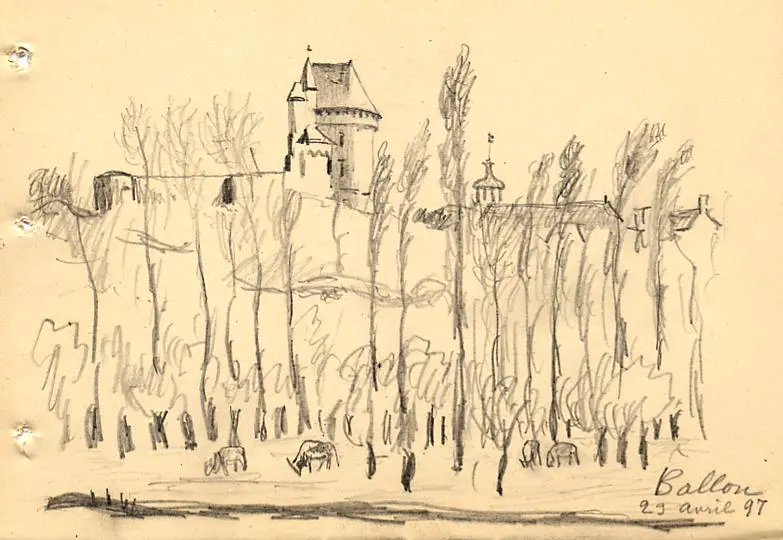 Ballon
29 avril 97